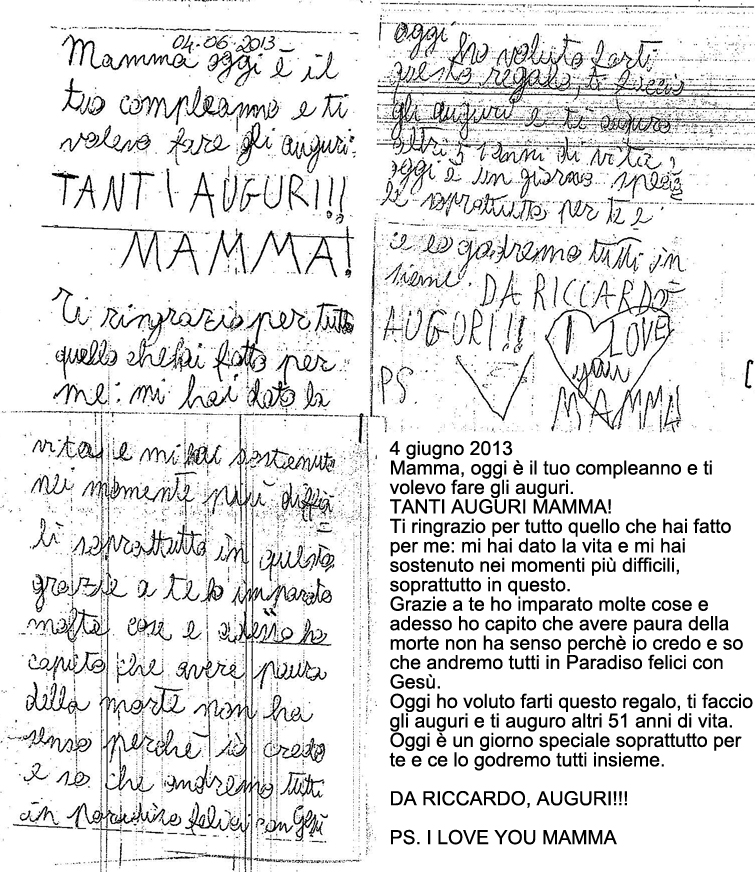 04-06-2013
Mamma oggi è il
tuo compleanno e ti
volevo fare gli auguri.
TANTI AUGURI!!!
MAMMA!
Ti ringrazio per tutto
quello che hai fatto per
me: mi hai dato la
vita e mi hai sostenuto
nei momenti più diffici
li soprattutto in questo
grazie a te ho imparato
molte cose e adesso ho
capito che avere paura
della morte non ha
senso perchè io credo
e so che andremo tutti
in paradiso felici con Gesù
oggi ho voluto farti
questo regalo, ti faccio
gli auguri e ti auguro
altri 51 anni di vita,
oggi è un giorno specia
le soprattutto per te e
ce lo godremo tutti in
sieme. DA RICCARDO
AUGURI!!
I LOVE
you
PS.
MAMMA
4 giugno 2013
Mamma, oggi è il tuo compleanno e ti
volevo fare gli auguri.
TANTI AUGURI MAMMA!
Ti ringrazio per tutto quello che hai fatto
per me: mi hai dato la vita e mi hai
sostenuto nei momenti più difficili,
soprattutto in questo.
Grazie a te ho imparato molte cose e
adesso ho capito che avere paura della
morte non ha senso perchè io credo e so
che andremo tutti in Paradiso felici con
Gesù.
Oggi ho voluto farti questo regalo, ti faccio
gli auguri e ti auguro altri 51 anni di vita.
Oggi è un giorno speciale soprattutto per
te e ce lo godremo tutti insieme.
DA RICCARDO, AUGURI!!!
PS. I LOVE YOU MAMMA